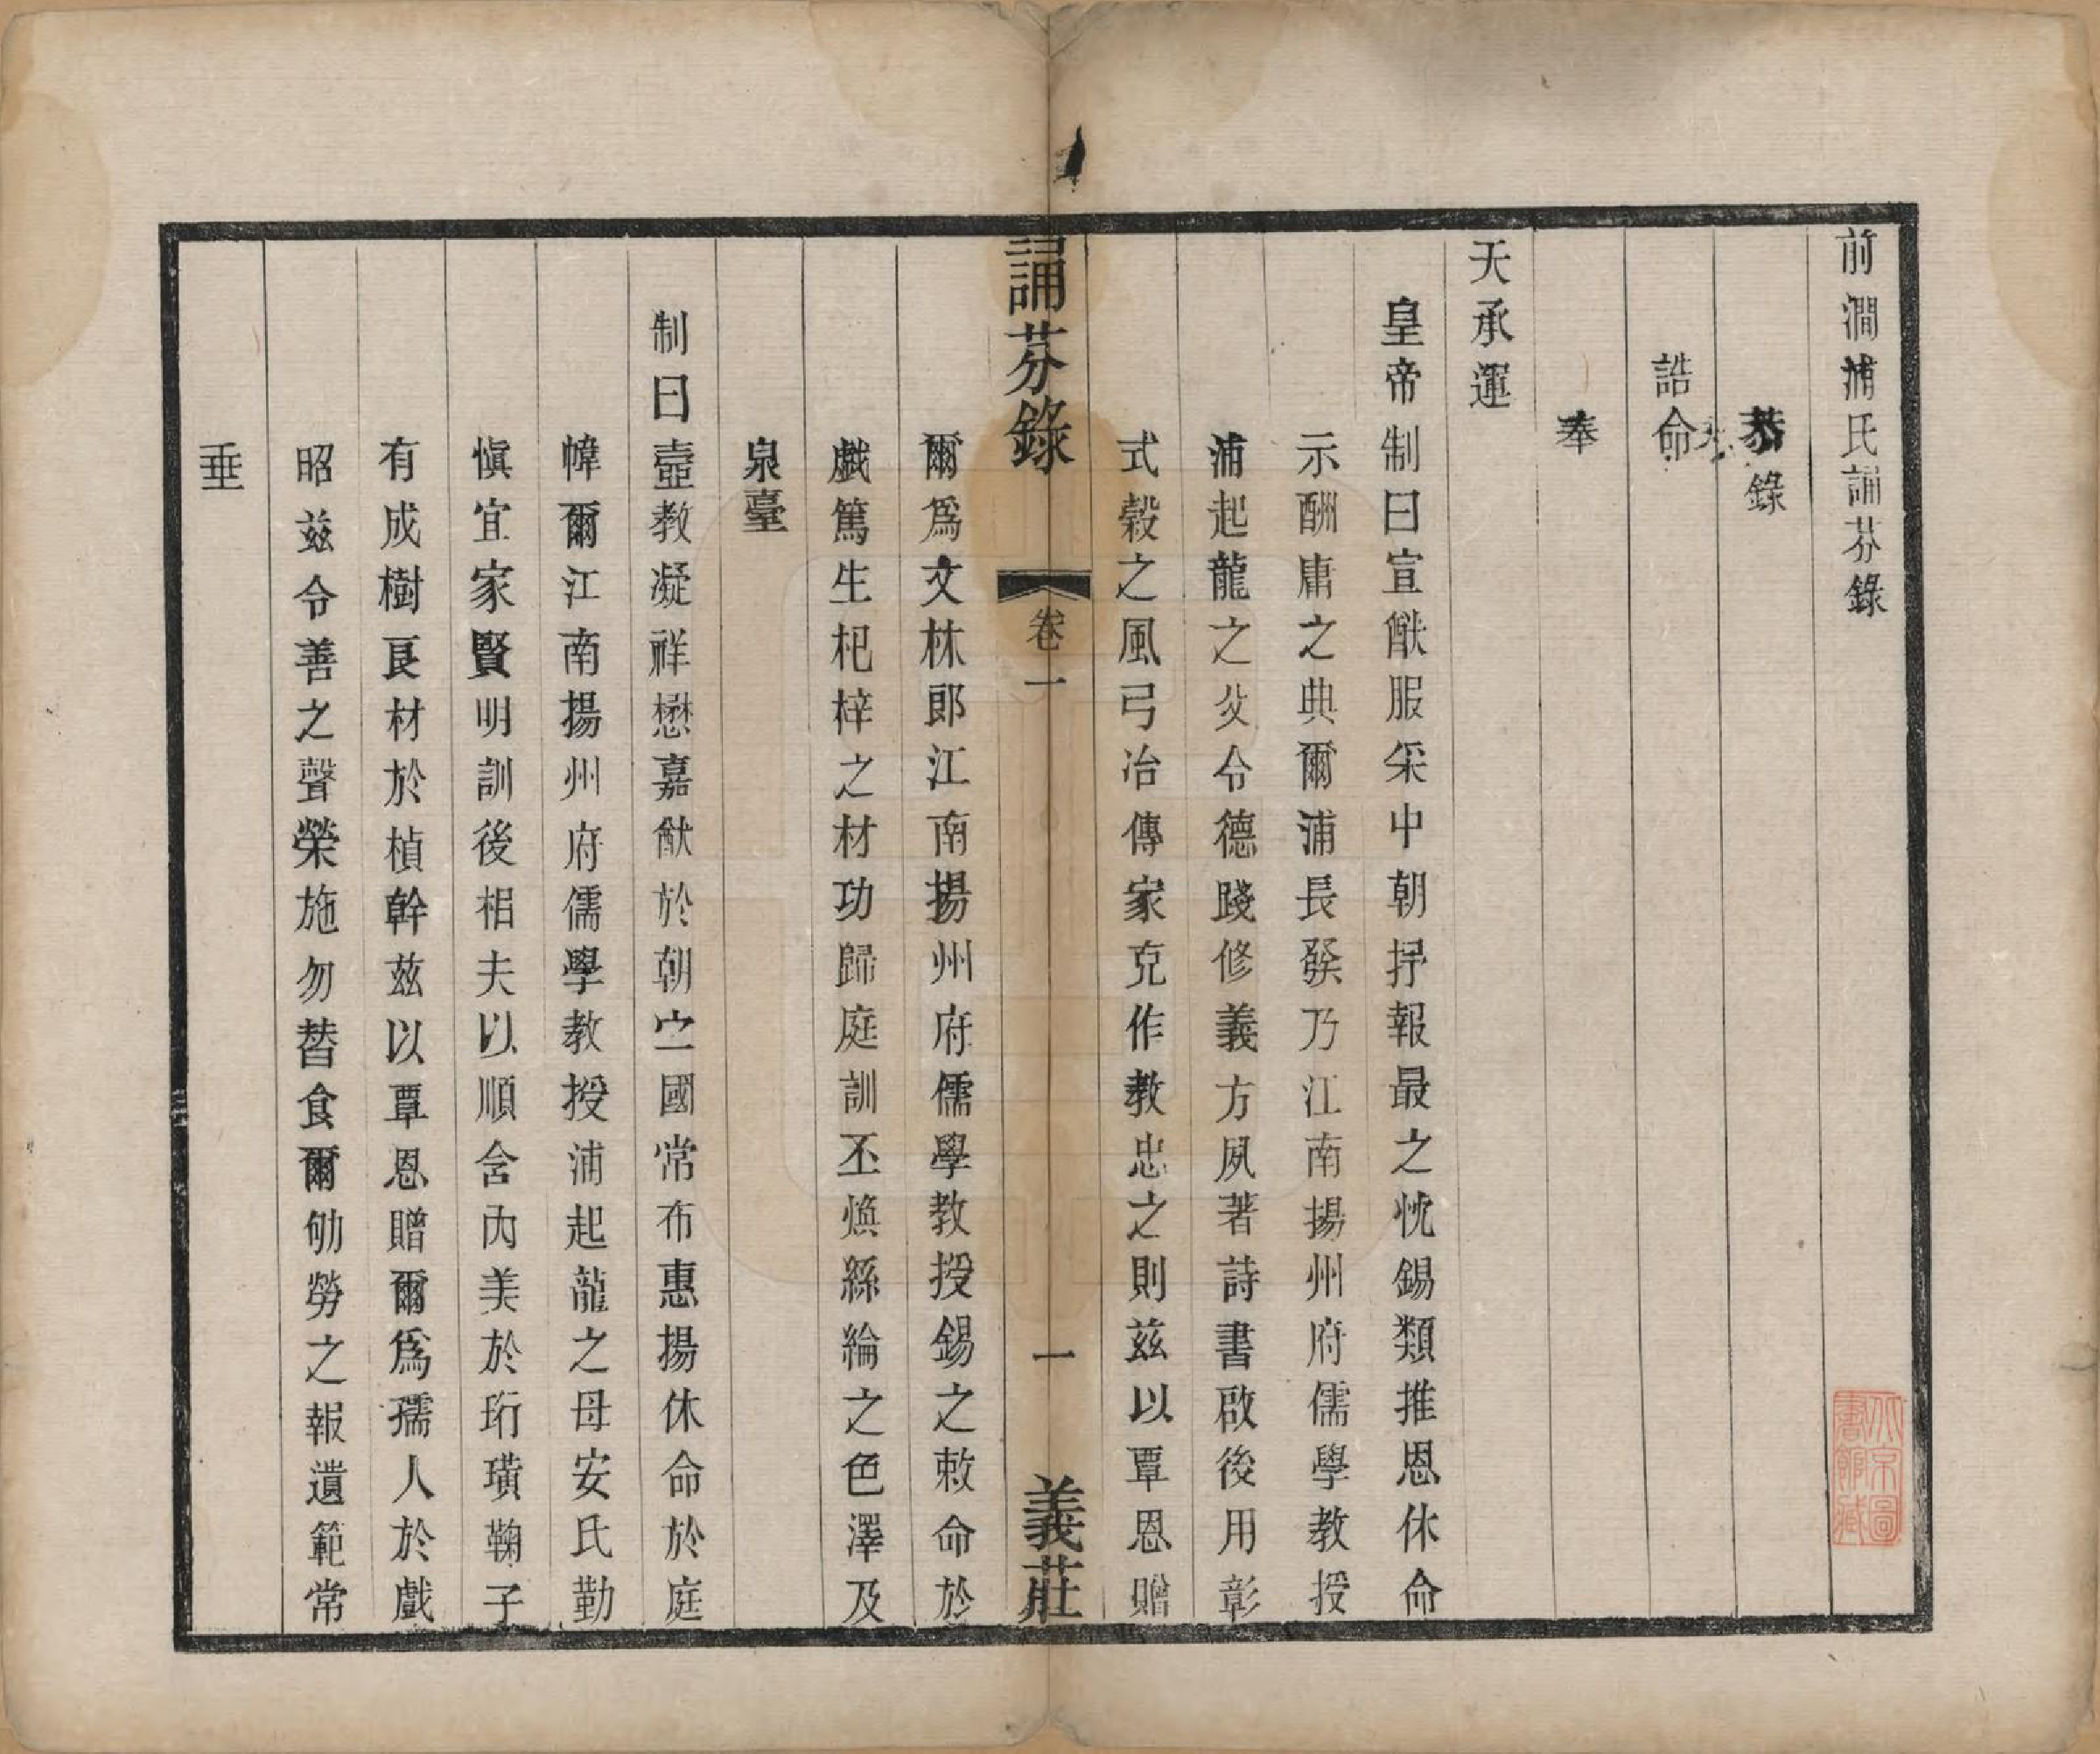 前澗浦氏誦芬錄
恭錄
誥命
奉
天承運
皇帝制曰宣猷服采中朝抒報最之忱錫類推恩休命
示酬庸之典爾浦長發乃江南揚州府儒學教授
浦起龍之父令德踐修義方夙著詩書啟後用彰
式穀之風弓冶傳家克作教忠之則茲以覃恩贈
爾爲文林郎江南揚州府儒學教授錫之敕命於
戲篤生杞梓之材功歸庭訓丕煥絲綸之色澤及
泉臺
制曰壼教凝祥懋嘉猷於朝宁國常布惠揚休命於庭
幃爾江南揚州府儒學教授浦起龍之母安氏勤
愼宜家賢明訓後相夫以順含內美於珩璜鞠子
有成樹良材於楨幹茲以覃恩贈爾爲孺人於戲
昭茲令善之聲榮施勿替食爾劬勞之報遺範常
垂
誦芬錄
卷一
一
義莊
北京圖書館藏